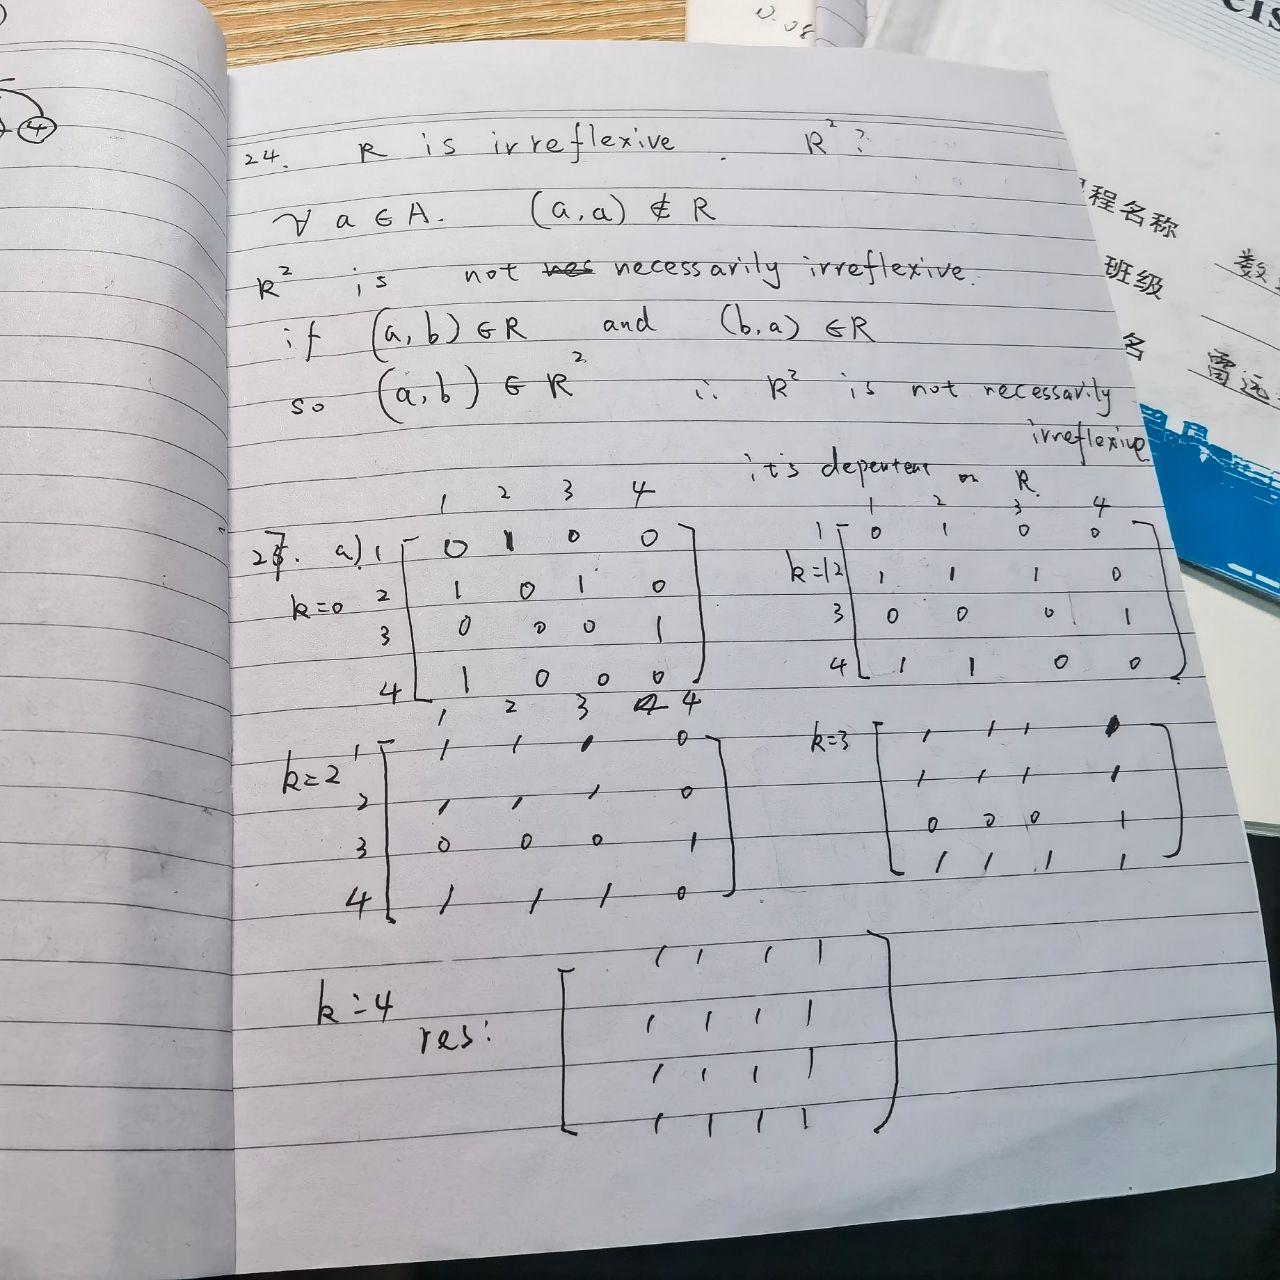 4
24. R is irreflexive . R² ?
∀ a ∈ A. (a,a) ∉ R
R² is not necessarily irreflexive.
if (a,b) ∈ R and (b,a) ∈ R
so (a,b) ∈ R² ∴ R² is not necessarily
irreflexive
it's dependent on R.
1 2 3 4
27. a) 1 0 1 0 0
k=0 2 1 0 1 0
3 0 0 0 1
4 1 0 0 0
1 2 3 4
1 0 1 0 0
k=1 2 1 1 1 0
3 0 0 0 1
4 1 1 0 0
1 2 3 4
1 1 1 1 0
k=2
2 1 1 1 0
3 0 0 0 1
4 1 1 1 0
k=3 1 1 1 1
1 1 1 1
0 0 0 1
1 1 1 1
k=4
res:
1 1 1 1
1 1 1 1
1 1 1 1
1 1 1 1
程名称
班级
名